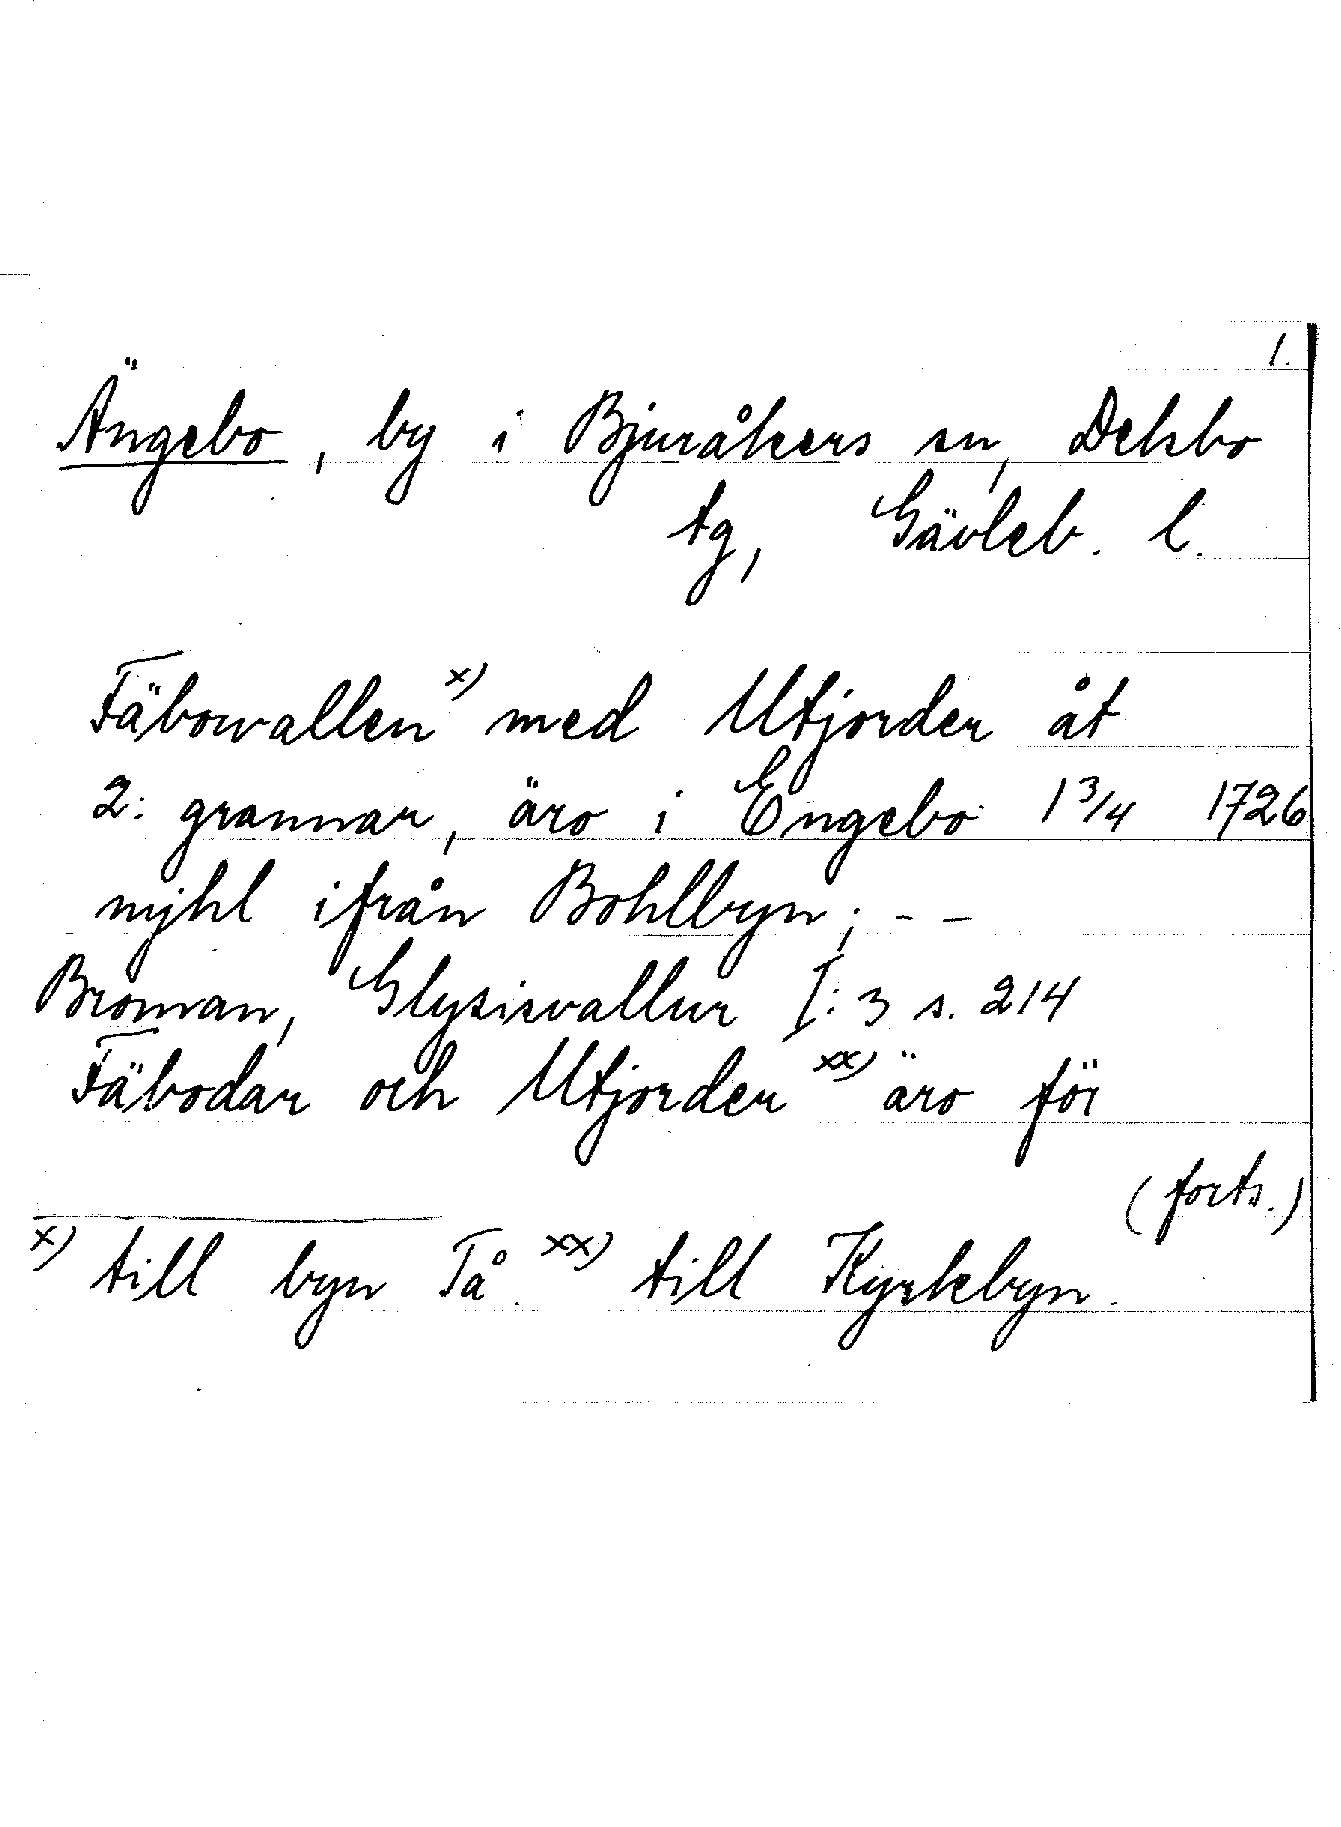 1.
Ängebo, by i Bjuråkers sn, Delsbo
tg, Gävleb. l.
Fäbowallen x) med Utjorder åt
2: grannar, äro i Engebo 1 3/4 1726
mijhl ifrån Bohlbyn; - -
Broman, Glysisvallur I: 3 s. 214
Fäbodar och Utjorder xx) äro för
(forts.)
x) till byn Tå. xx) till Kyrkebyn.